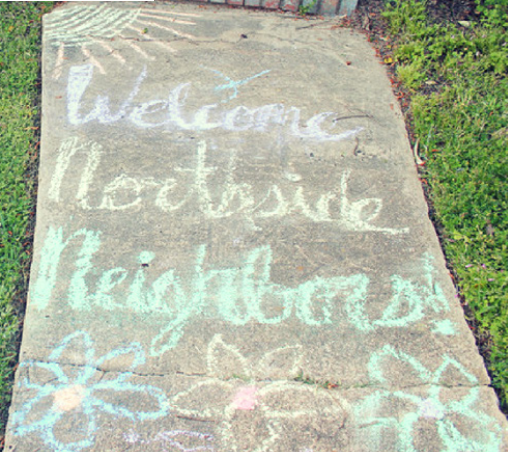 Welcome
Northside
Neighbors!